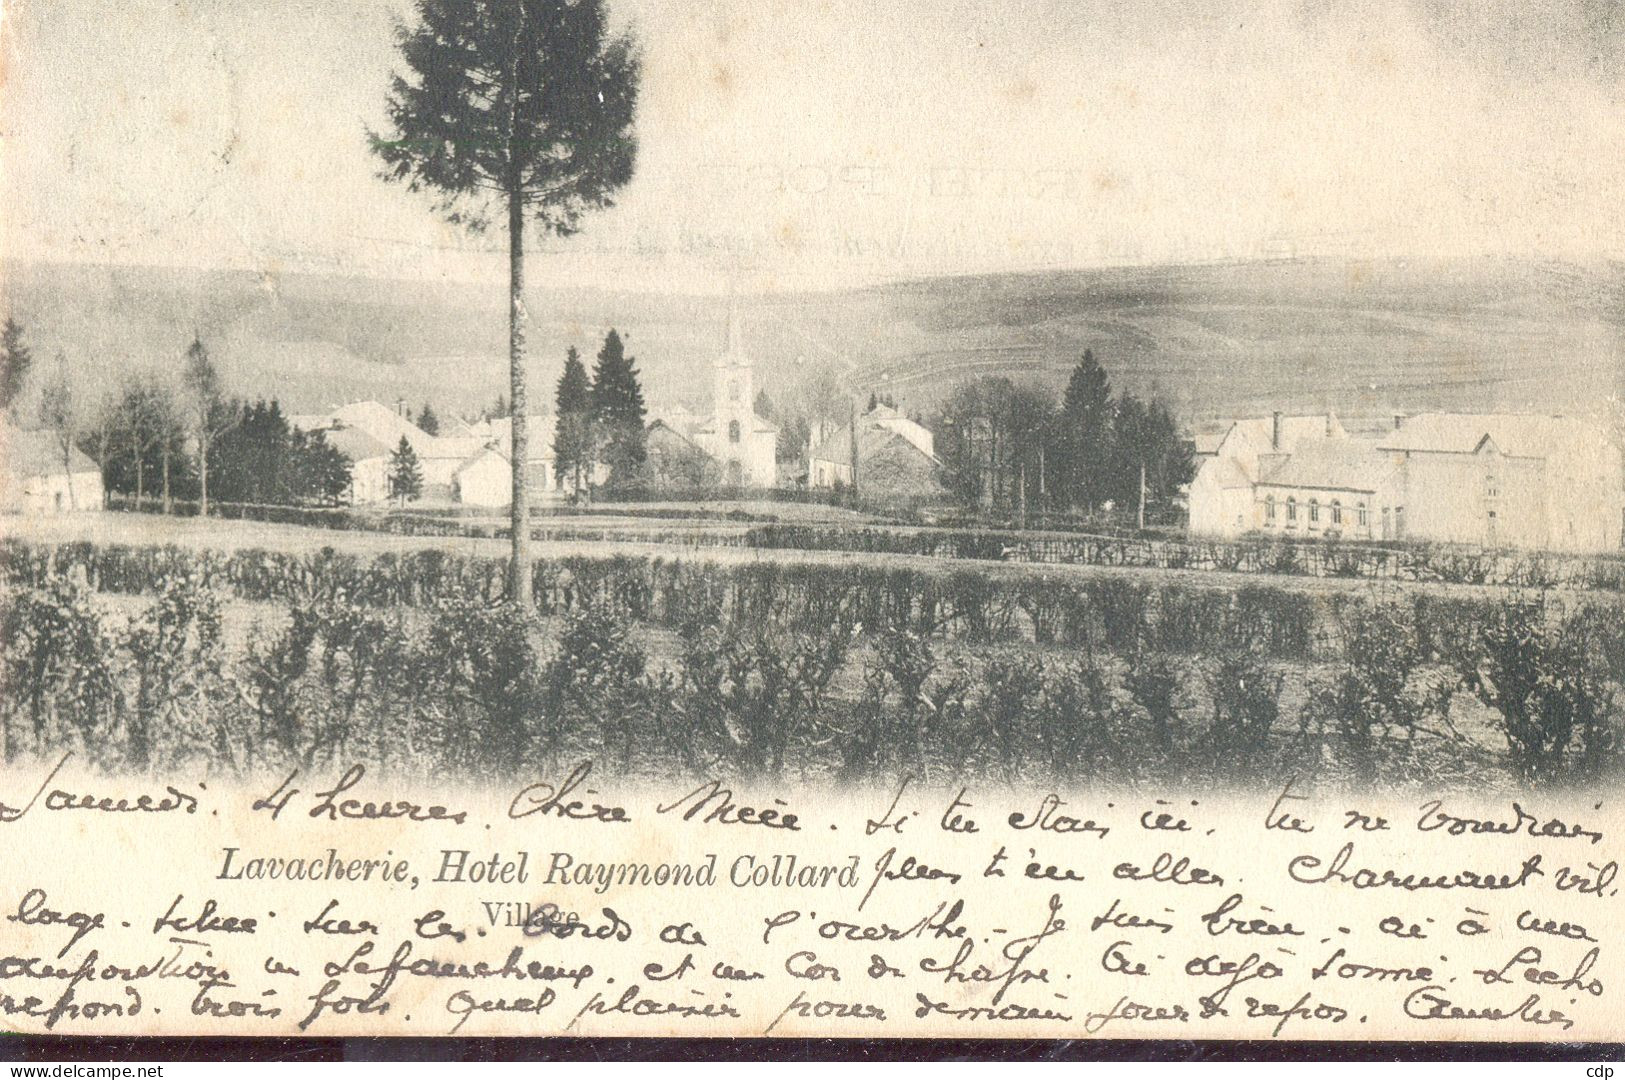 Samedi. 4 heures. Chère Mèce. Si tu étais ici, tu ne voudrais
Lavacherie, Hotel Raymond Collard plus t'en aller. Charmant vil.
Village
lage. situé sur les bords de l'ourthe. - Je suis bien. - ai à ma
disposition un Lefaucheux. et un Cor de chasse. Ai déjà sonné. L'echo
repond. trois fois. Quel plaisir pour demain jour de repos.
cdp